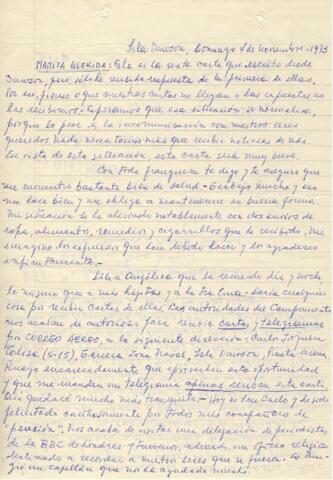 Isla Dawson, Domingo 4 de Noviembre - 1973
MAMITA QUERIDA: Esta es la sexta carta que escribo desde
Dawson, pero sólo he recibido respuesta de la primera de ellas.
Por eso, pienso o que nuestras cartas no llegan o las respuestas no
las recibimos. Esperamos que esa situación se normalice,
porque lo peor es la incomunicación con nuestros seres
queridos. Nada necesitamos más que recibir noticias de uds.
En vista de esta situación, esta carta será muy breve.
Con toda franqueza te digo y te aseguro que
me encuentro bastante bien de salud. Trabajo mucho y eso
me hace bien y me obliga a mantenerme en buena forma.
Mi situación se ha aliviado notablemente con los envíos de
ropa, alimentos, remedios y cigarrillos que he recibido. Me
imagino los esfuerzos que han debido hacer y los agradezco
infinitamente.
Dile a Angélica que la recuerdo día y noche
lo mismo que a mis hijitas y a la Sra. Daría cualquier
cosa por recibir cartas de ellas. Las autoridades del Campamento
nos acaban de autorizar para recibir cartas y telegramas
por CORREO AEREO, a la siguiente dirección: Carlos Jorquera
Tolosa (S-15), Tercera Zona Naval, Isla Dawson, Punta Arenas.
Ruego encarecidamente que aprovechen esta oportunidad
y que me manden un telegrama apenas reciban esta carta.
Así quedaré mucho más tranquilo. Hoy es San Carlos y he sido
felicitado cariñosamente por todos mis compañeros de
"pensión". Nos acaba de visitar una delegación de periodistas
de la BBC de Londres y tuvimos, además, un oficio religioso
destinado a recordar a nuestros seres que se fueron. Lo
un capellán que nos ha ayudado mucho.